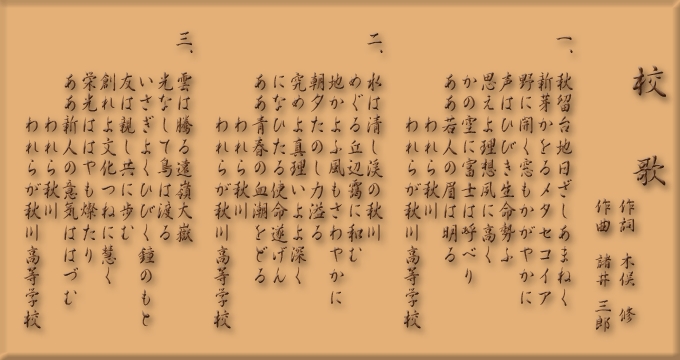 校歌
作詞 木俣 修
作曲 諸井 三郎
一、
秋留台地日ざしあまねく
新芽かをるメタセコイア
野に開く窓もかがやかに
声はひびき生命勢ふ
思えよ理想夙に高く
かの空に富士は呼べり
ああ若人の眉は明る
われら秋川
われらが秋川高等学校
二、
水は清し渓の秋川
めぐる丘辺靄に和む
地かよふ風もさわやかに
朝夕たのし力溢る
究めよ真理いよよ深く
になひたる使命遂げん
ああ青春の血潮をどる
われら秋川
われらが秋川高等学校
三、
雲は騰る遠嶺大嶽
光なして鳥は渡る
いさぎよくひびく鐘のもと
友は親し共に歩む
創れよ文化つねに慧く
栄光ははやも燦たり
ああ新人の意気ははづむ
われら秋川
われらが秋川高等学校